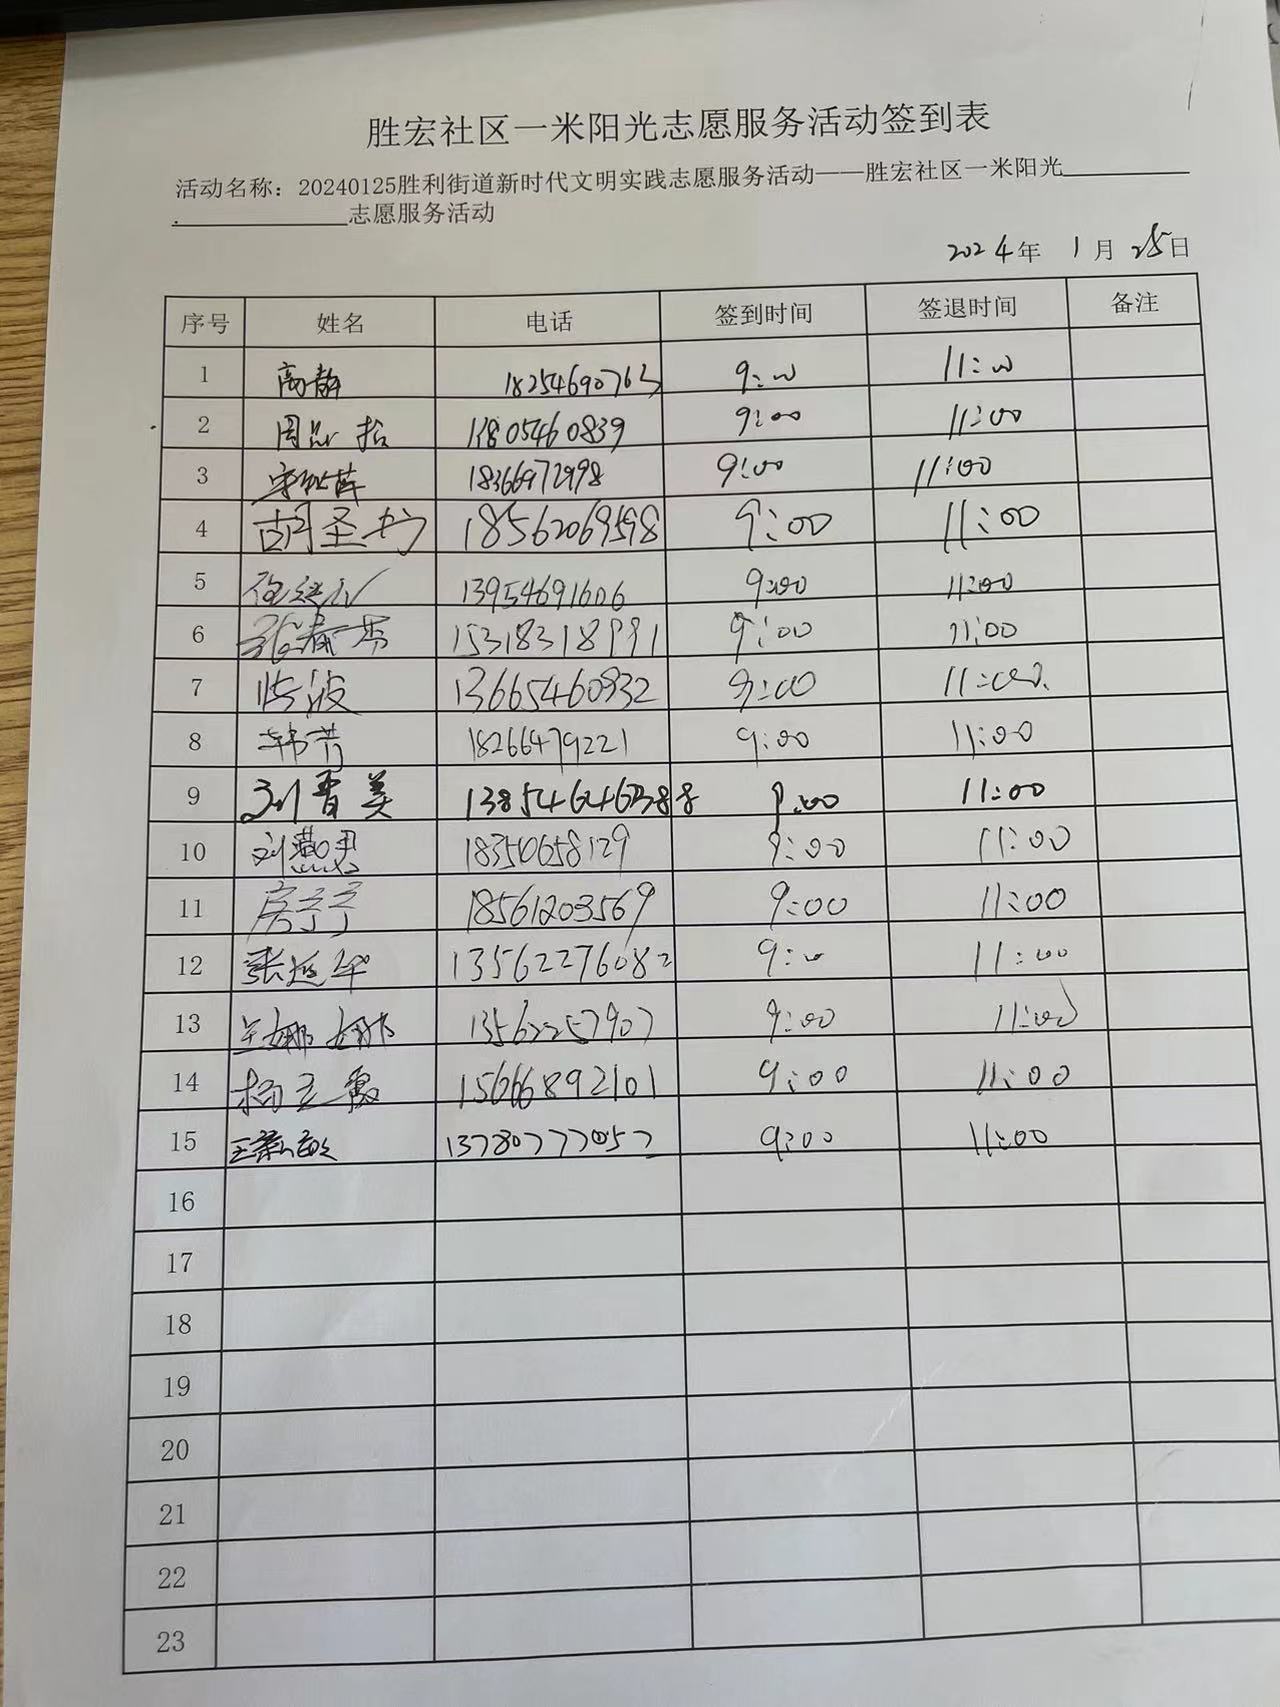 胜宏社区一米阳光志愿服务活动签到表
活动名称：20240125胜利街道新时代文明实践志愿服务活动——胜宏社区一米阳光
志愿服务活动
2024年 1月 25日
序号 姓名 电话 签到时间 签退时间 备注
1 高静 18254690763 9:00 11:00
2 13805460839 9:00 11:00
3 18366972998 9:00 11:00
4 18562069598 9:00 11:00
5 13954691606 9:00 11:00
6 张春秀 15318318991 9:00 11:00
7 13665460932 9:00 11:00
8 韩芳 18266479221 9:00 11:00
9 刘晋美 9:00 11:00
10 刘燕 18350658129 9:00 11:00
11 房宁宁 18561203569 9:00 11:00
12 张延华 13562276082 9:00 11:00
13 13562257907 9:00 11:00
14 杨立霞 15666892101 9:00 11:00
15 王 敏 13780777057 9:00 11:00
16
17
18
19
20
21
22
23